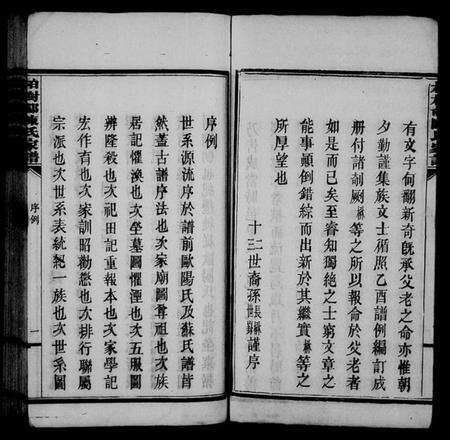 有文字何翻新奇旣承父老之命亦惟朝
夕勤謹集族文士循照乙酉譜例編訂成
册付諸剞劂 等之所以報命於父老者
如是而已矣至睿知獨絶之士窮文章之
能事顚倒錯綜而出新於其繼實 等之
所厚望也
十二世裔孫 謹序
序例
世系源流序於譜前歐陽氏及蘇氏譜皆
然蓋古譜序法也次家廟圖尊祖也次族
居記懼渙也次塋墓圖懼湮也次五服圖
辨隆殺也次祀田記重報本也次家學記
宏作育也次家訓昭勸懲也次排行聯屬
宗派也次世系表統 一族也次世系圖
氏家譜
序例
一